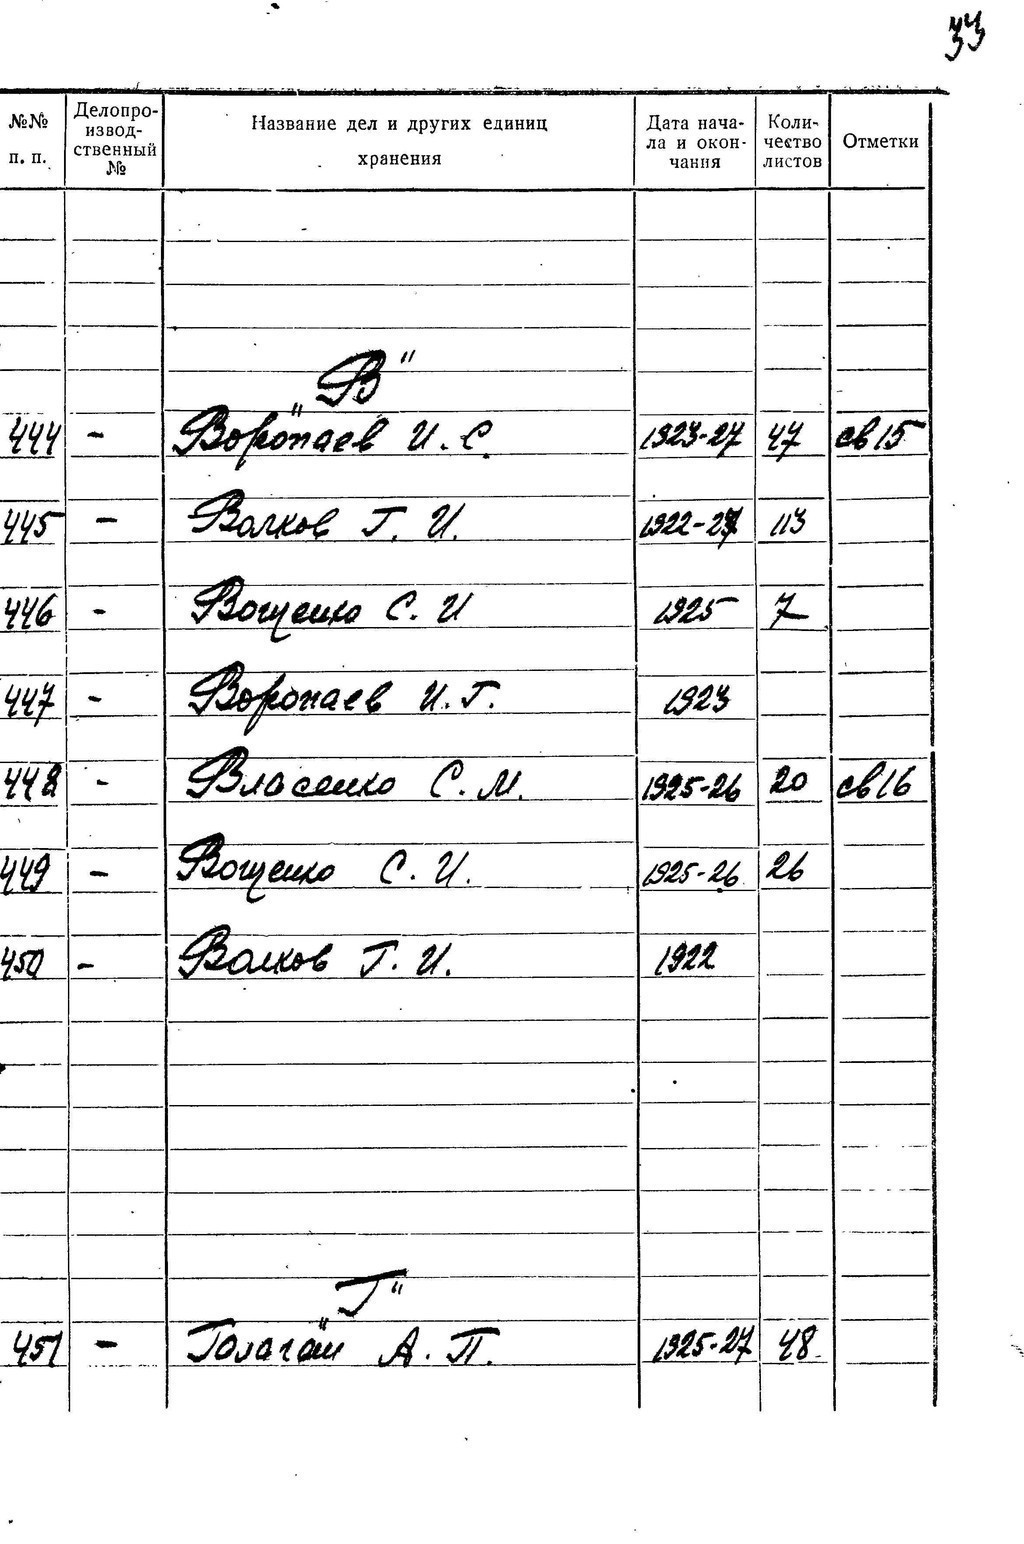 33
№№ п. п. Делопроизводственный № Название дел и других единиц хранения Дата начала и окончания Количество листов Отметки
„В"
444 - Воропаев И. С. 1923-27 47 св 15
445 - Волков Г. И. 1922-27 113
446 - Вощенко С. И 1925 7
447 - Воропаев И. Г. 1923
448 - Власенко С. М. 1925-26 20 св 16
449 - Вощенко С. И. 1925-26 26
450 - Волков Г. И. 1922
„Г"
451 - Голаган А. П. 1925-27 48